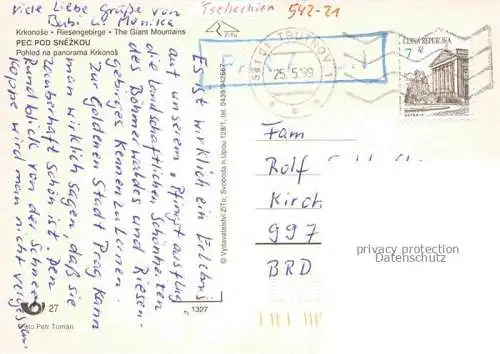 viele Liebe Grüße von
Babi u. Monika
Krkonoše • Riesengebirge • The Giant Mountains
PEC POD SNĚŽKOU
Pohled na panorama Krkonoš
Es ist wirklich ein Erlebnis
auf unserem „Pfingstausflug"
die landschaftlichen Schönheiten
des Böhmerwaldes und Riesen-
gebirges kennen zu lernen.
Zur Goldenen Stadt Prag kann
man wirklich sagen, daß sie
zauberhaft schön ist. Den
Rundblick von der Schnee-
Koppe wird man nicht vergessen.
27
Foto Petr Toman
© Vydavatelství ZiTo, Svoboda n. Úpou 128/1, tel. 0439/942667
1327
ZiTo
Tschechien
542-21
TRUTNOV 1
25.5.99
ČESKÁ REPUBLIKA
7
Fam
Rolf
Kirch
997
BRD
privacy protection
Datenschutz